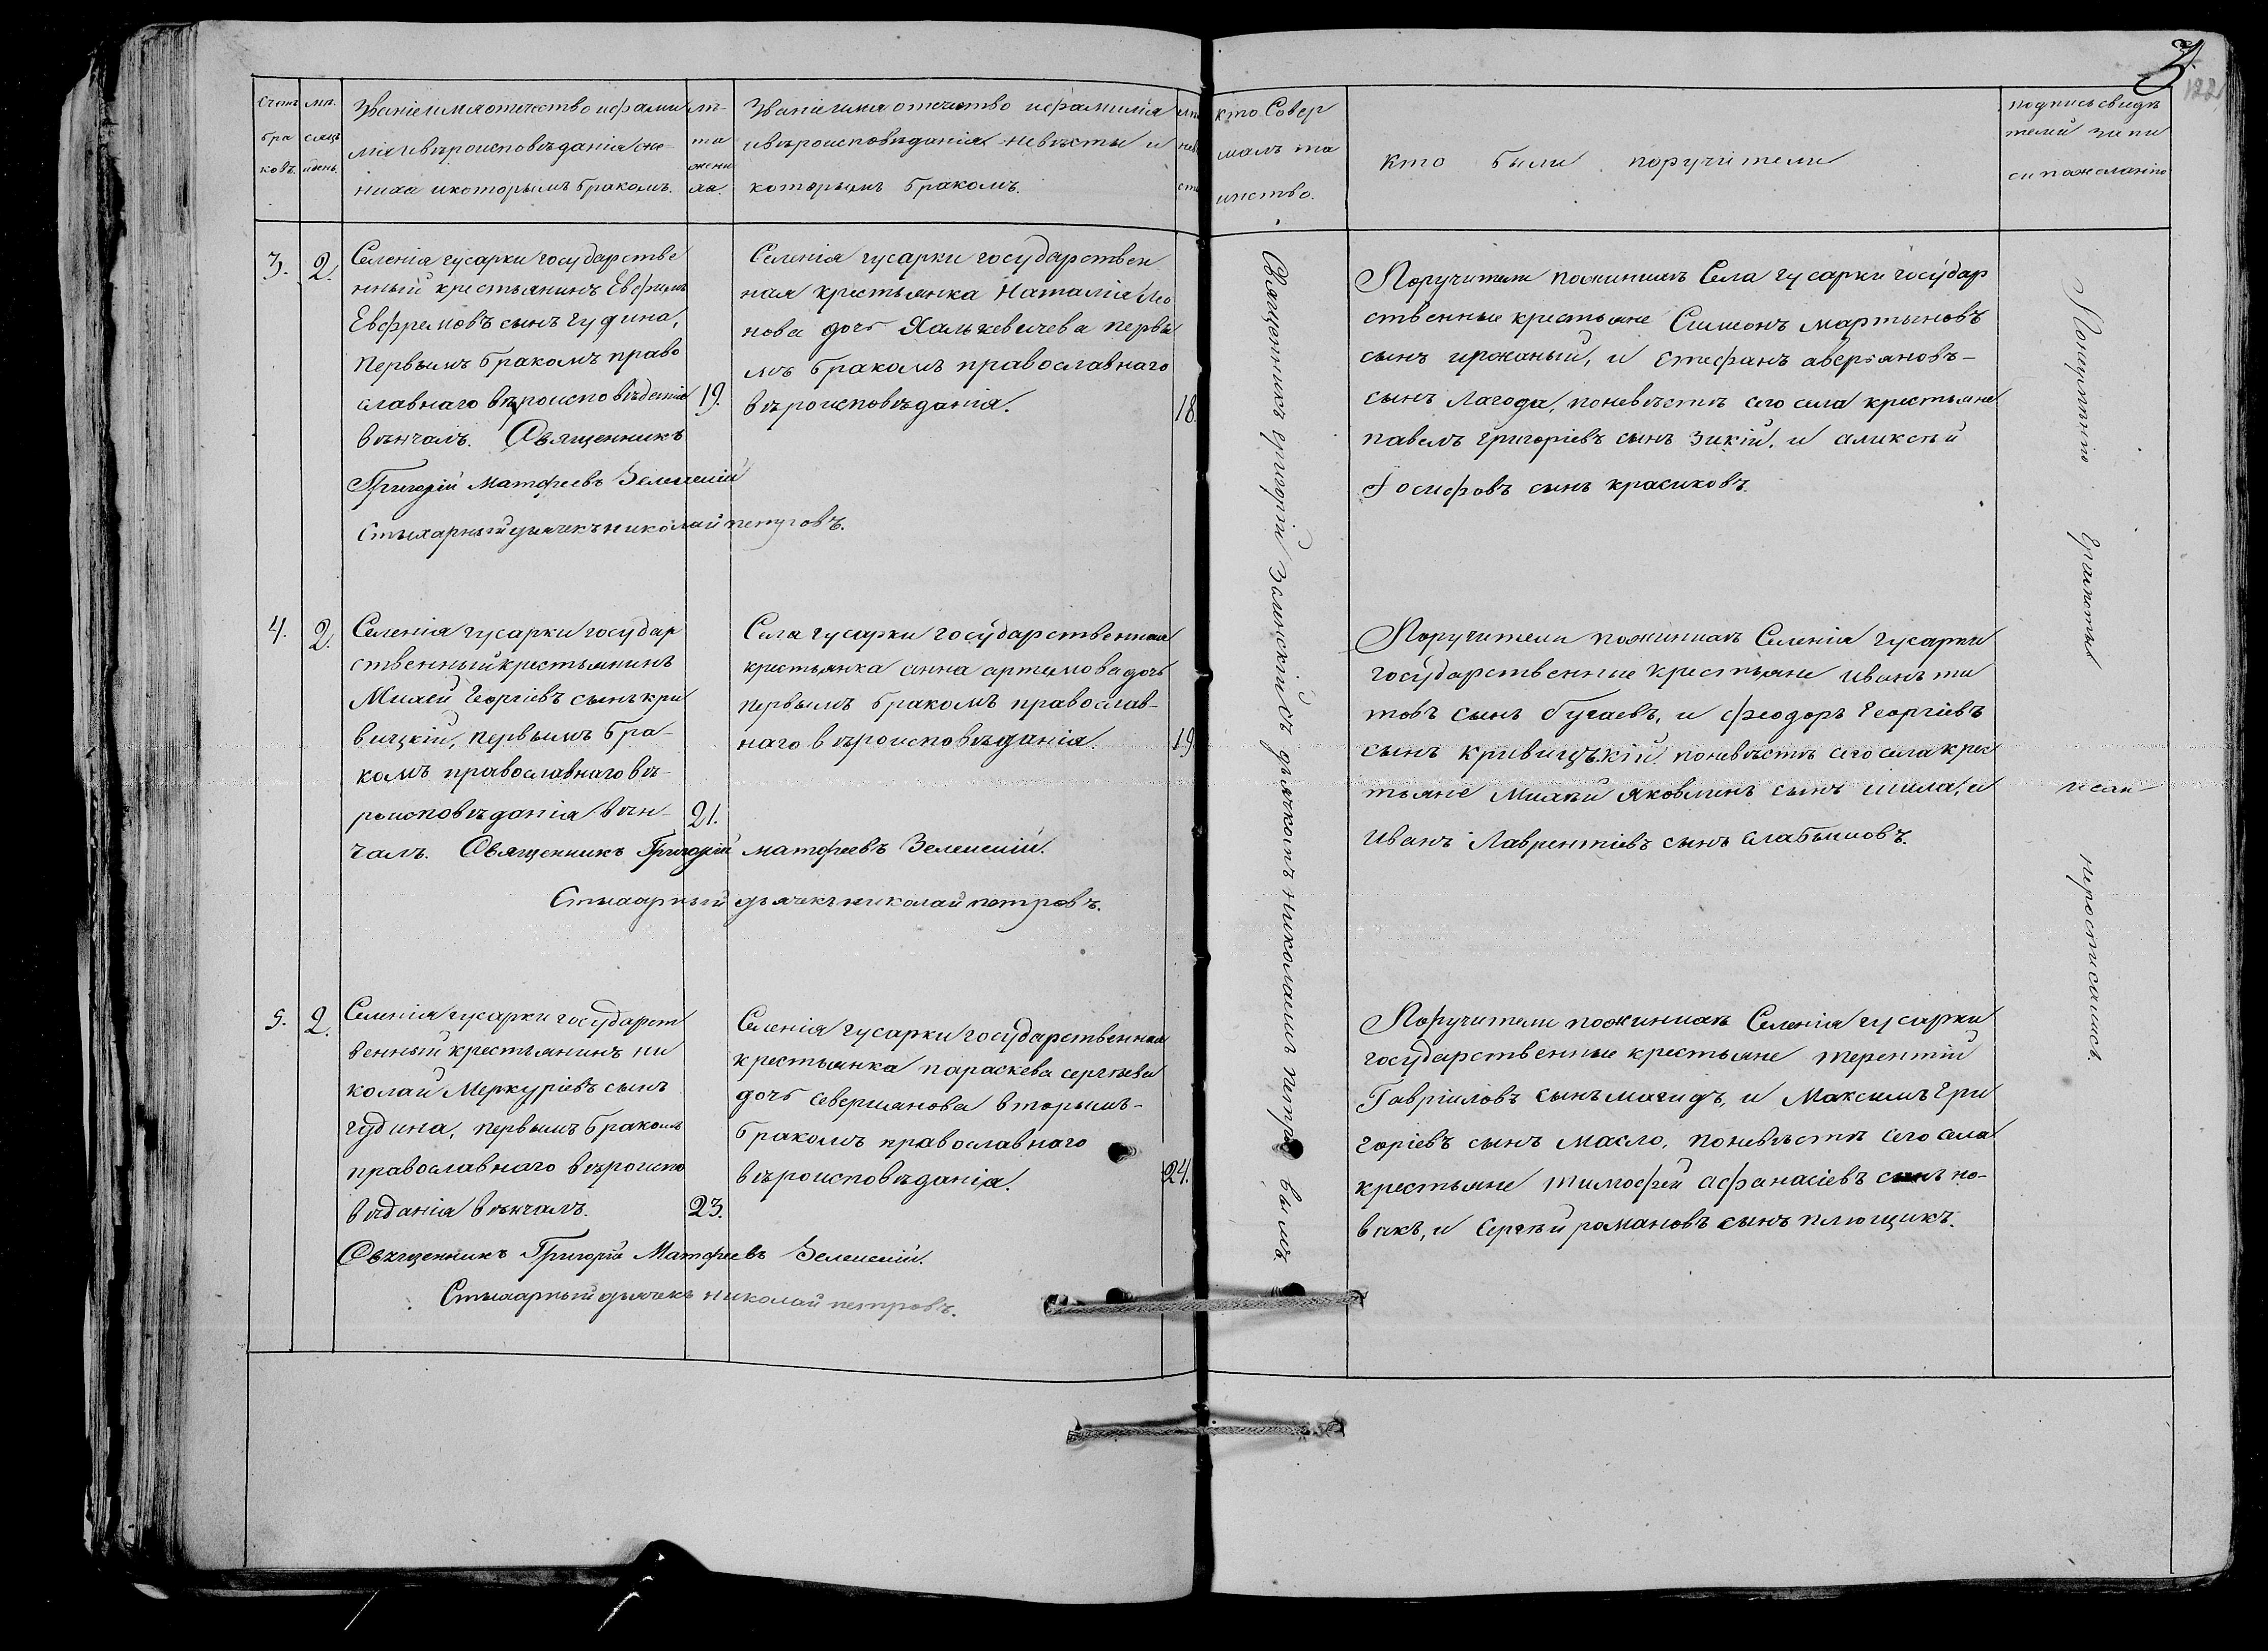 3.
122
Счетъ бра ковъ.
мѣ. сяцъ и день.
Званіе имя отечество и фами
лія и вѣроисповѣданія же-
ниха и которымъ бракомъ.
лѣ-
та
жени
ха.
Званіе имя отечество и фамилія
и вѣроисповѣданія невѣсты и
которымъ бракомъ.
лѣ
невѣ
сты
кто Совер
шалъ та
инство.
кто были поручители
подпись свидѣ
телей запи
си по желанію
3.
2.
Селенія гусарки государстве
нный крестьянинъ Евфимъ
Евфремовъ сынъ гудина,
Первымъ бракомъ право
славнаго вѣроисповѣденія
19.
вѣнчалъ. Священникъ
Григорій Матфеевъ Зеленскій
Стихарный дьячекъ николай петровъ.
Селенія гусарки государствен
ная крестьянка Наталія Лео
нова дочь Халькевичева первы
мъ бракомъ православнаго
вѣроисповѣданія.
18.
Поручители по женихѣ Села гусарки государ
ственные крестьяне Симеонъ мартыновъ
сынъ иржаный, и Стефанъ аверьяновъ-
сынъ Лагода, по невѣстѣ сего села крестьяне
павелъ григоріевъ сынъ зикій, и алексѣй
Іосифовъ сынъ красиковъ.
4.
2.
Селенія гусарки государ
ственный крестьянинъ
Михей Георгіевъ сынъ кри
вицкій, первымъ бра-
комъ православнаго вѣ-
роисповѣданія вѣн-
21.
чалъ. Священникъ Григорій матфеевъ Зеленскій.
Стихарный дьячекъ николай петровъ.
Села гусарки государственная
крестьянка анна артемова дочь
первымъ бракомъ православ-
наго вѣроисповѣданія.
19.
Поручители по женихѣ Селенія гусарки
государственные крестьяне иванъ ти
товъ сынъ бугаевъ, и феодоръ Георгіевъ
сынъ кривицъкій. по невѣстѣ сего села крес
тьяне Михѣй яковлевъ сынъ шила, и
иванъ Лаврентіевъ сынъ слабышовъ.
5.
2.
Селенія гусарки государст
венный крестьянинъ ни
колай Меркуріевъ сынъ
гудина, первымъ бракомъ
православнаго вѣроиспо
вѣданія вѣнчалъ.
23.
Священникъ Григорій Матфеевъ Зеленскій.
Стихарный дьячекъ николай петровъ.
Селенія гусарки государственная
крестьянка параскева сергѣева
дочь северианова вторымъ-
бракомъ православнаго
вѣроисповѣданія.
24.
Поручители по женихѣ Селенія гусарки
государственные крестьяне терентій
Гавріиловъ сынъ магидъ, и Максимъ гри
горіевъ сынъ масло, по невѣстѣ сего села
крестьяне тимофей афанасіевъ сынъ но-
вакъ, и Сергѣй романовъ сынъ плющикъ.
Священникъ григорій Зеленскій съ дьячкомъ николаемъ петро вымъ
По неумѣнію грамотѣ неросписались